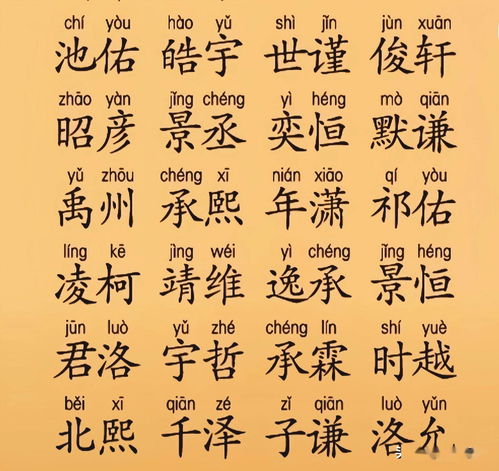 chí yòu hào yǔ shì jǐn jùn xuān
池佑 皓宇 世谨 俊轩
zhāo yàn jǐng chéng yì héng mò qiān
昭彦 景丞 奕恒 默谦
yǔ zhōu chéng xī nián xiāo qí yòu
禹州 承熙 年潇 祁佑
líng kē jìng wéi yì chéng jǐng héng
凌柯 靖维 逸承 景恒
jūn luò yǔ zhé chéng lín shí yuè
君洛 宇哲 承霖 时越
běi xī qiān zé zǐ qiān luò yǔn
北熙 千泽 子谦 洛允